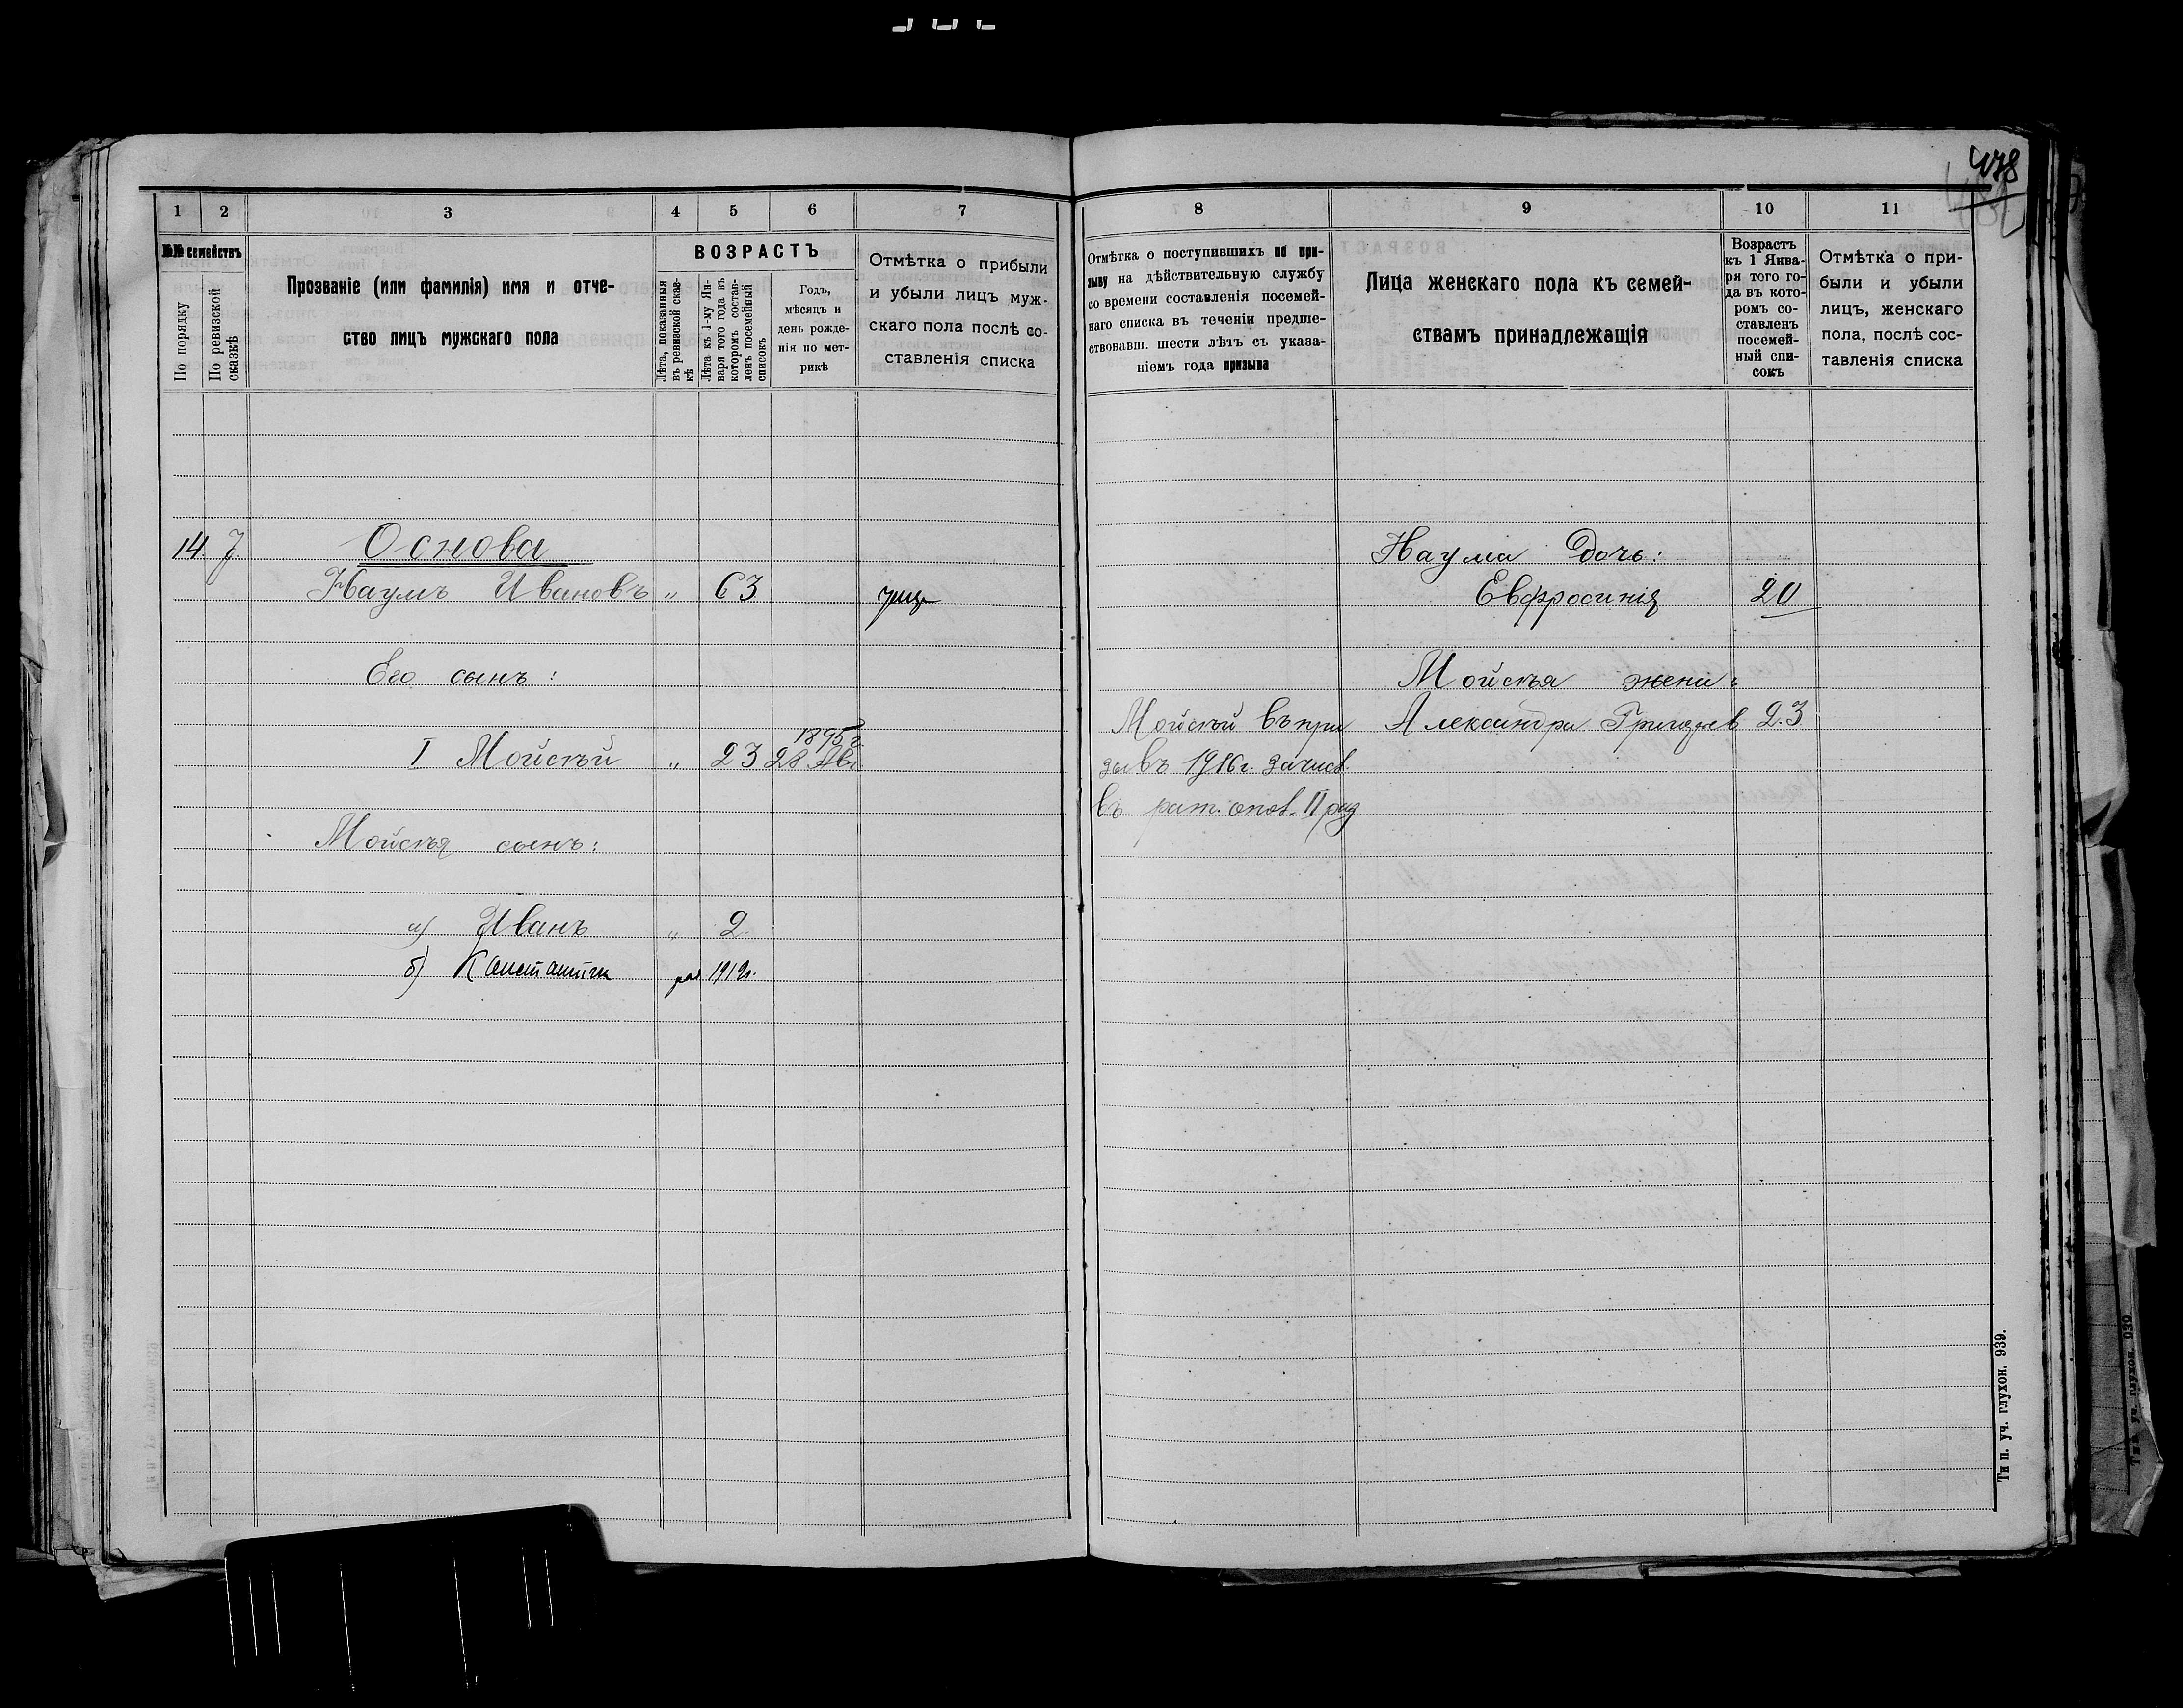 478
1 2 3 4 5 6 7
№№ семействъ
По порядку
По ревизской сказкѣ
Прозваніе (или фамилія) имя и отче-
ство лицъ мужскаго пола
ВОЗРАСТЪ
Лѣта, показанныя
въ ревизской сказ-
кѣ
Лѣта къ 1-му Ян-
варя того года въ
которомъ состав-
ленъ посемейный
списокъ
Годъ,
мѣсяцъ и
день рожде-
нія по мет-
рикѣ
Отмѣтка о прибыли
и убыли лицъ муж-
скаго пола послѣ со-
ставленія списка
14. 7. Основа
Наумъ Ивановъ „ 63
Его сынъ:
1895 г.
I Мойсѣй „ 23 28 Авг.
Мойсѣя сынъ:
а) Иванъ „ 2.
б) Константин 1919г.
8 9 10 11
Отмѣтка о поступившихъ по при-
зыву на дѣйствительную службу
со времени составленія посемей-
наго списка въ теченіи предше-
ствовавш. шести лѣтъ съ указа-
ніемъ года призыва
Лица женскаго пола къ семей-
ствамъ принадлежащія
Возрастъ
къ 1 Янва-
ря того го-
да въ кото-
ромъ со-
ставленъ
посемей-
ный спи-
сокъ
Отмѣтка о при-
были и убыли
лицъ, женскаго
пола, послѣ сос-
тавленія списка
Наума дочь:
Евфросинія 20
Мойсѣя жена:
Мойсѣй въ при Александра 23
зывъ 1916г. зачисл.
въ рат. опол. II раз
Тип. уч. глухон. 939.